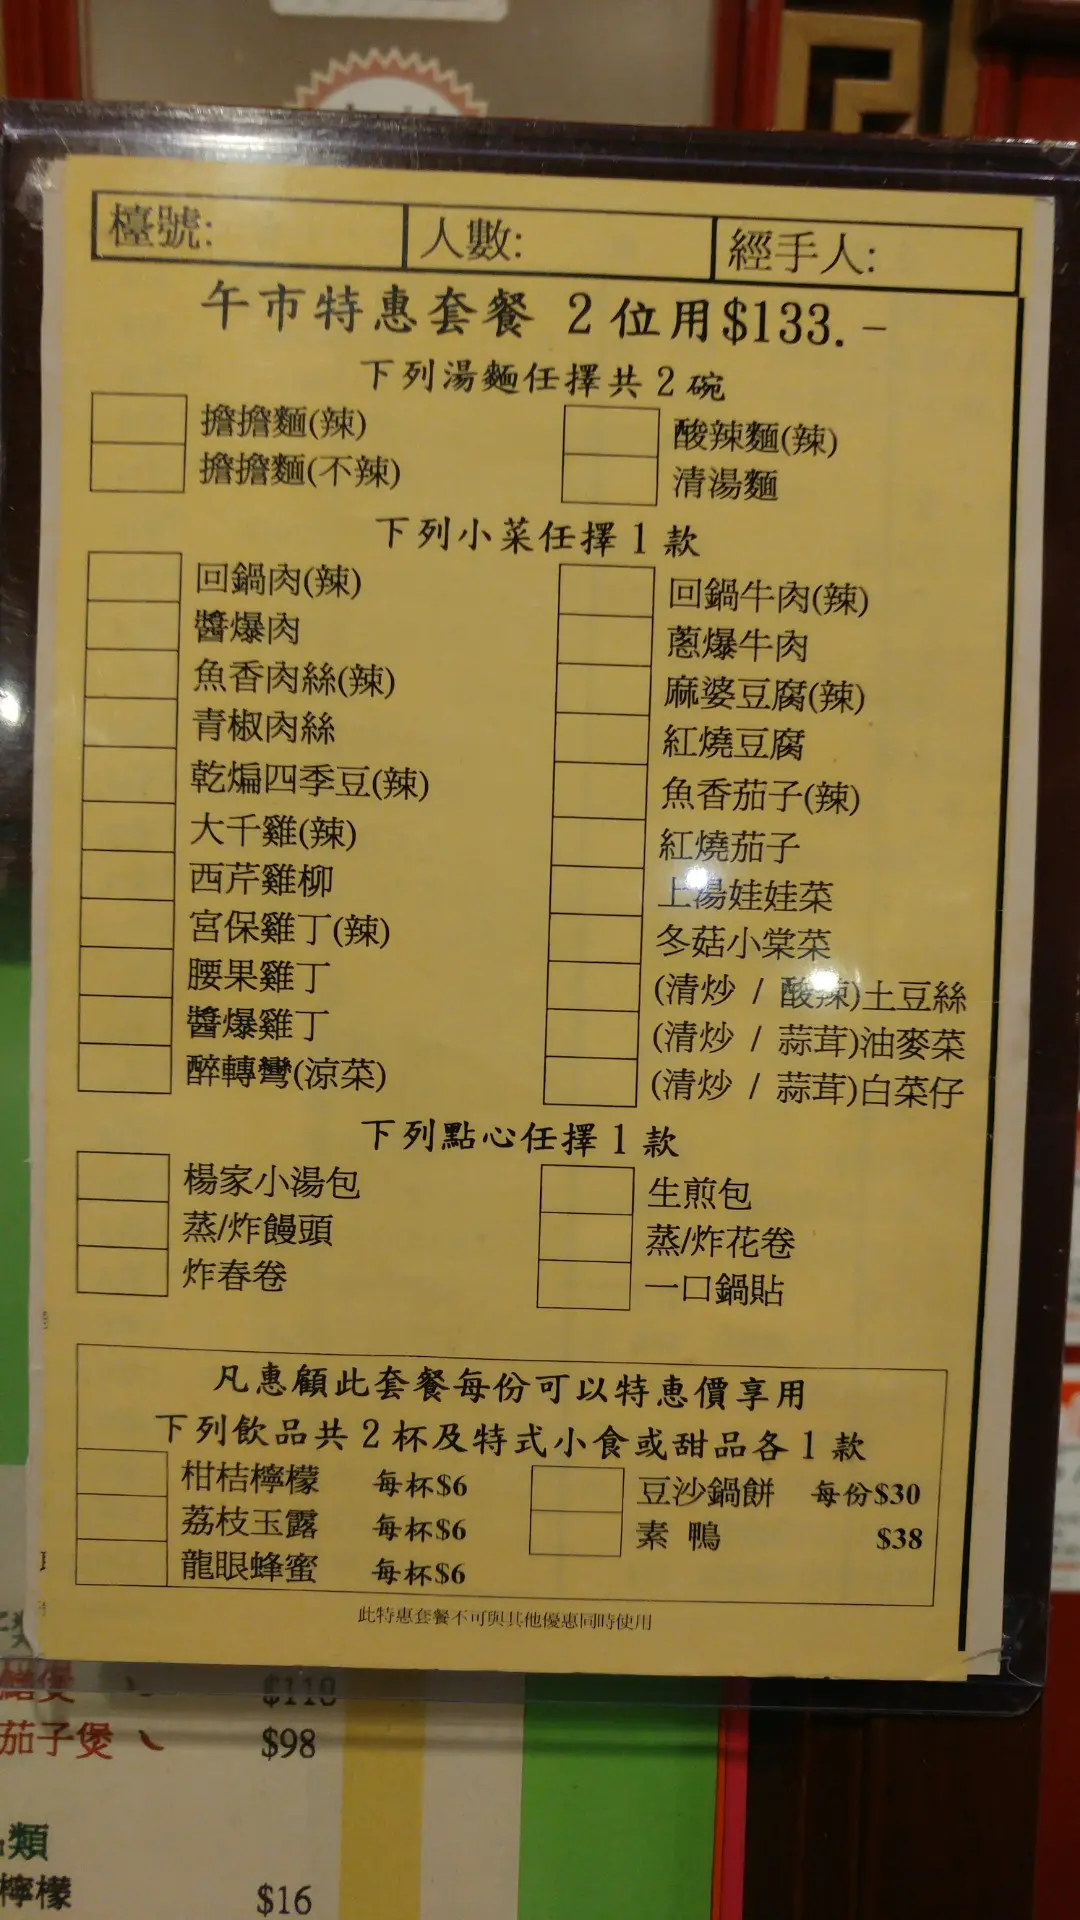 檯號: 人數: 經手人:
午市特惠套餐 2位用$133.-
下列湯麵任擇共2碗
擔擔麵(辣) 酸辣麵(辣)
擔擔麵(不辣) 清湯麵
下列小菜任擇1款
回鍋肉(辣) 回鍋牛肉(辣)
醬爆肉 蔥爆牛肉
魚香肉絲(辣) 麻婆豆腐(辣)
青椒肉絲 紅燒豆腐
乾煸四季豆(辣) 魚香茄子(辣)
大千雞(辣) 紅燒茄子
西芹雞柳 上湯娃娃菜
宮保雞丁(辣) 冬菇小棠菜
腰果雞丁 (清炒 / 酸辣)土豆絲
醬爆雞丁 (清炒 / 蒜茸)油麥菜
醉轉彎(涼菜) (清炒 / 蒜茸)白菜仔
下列點心任擇1款
楊家小湯包 生煎包
蒸/炸饅頭 蒸/炸花卷
炸春卷 一口鍋貼
凡惠顧此套餐每份可以特惠價享用
下列飲品共2杯及特式小食或甜品各1款
柑桔檸檬 每杯$6 豆沙鍋餅 每份$30
荔枝玉露 每杯$6 素 鴨 $38
龍眼蜂蜜 每杯$6
此特惠套餐不可與其他優惠同時使用
煲 $118
茄子煲 $98
類
檸檬 $16